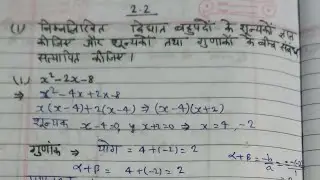 2.2
(1) निम्नलिखित द्विघात बहुपदों के शून्यकों ज्ञात
कीजिए और शून्यकों तथा गुणांकों के बीच संबंध
सत्यापित कीजिए।
(i) x²-2x-8
⇒ x²-4x+2x-8
x(x-4)+2(x-4) ⇒ (x-4)(x+2)
शून्यक x-4=0, x+2=0 ⇒ x=4, -2
गुणांक ⇒ योग = 4+(-2) = 2
α+β = -b/a
α+β = 4+(-2) = 2